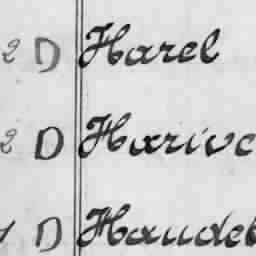 2 D Harel
2 D Harivc
1 D Haudeb